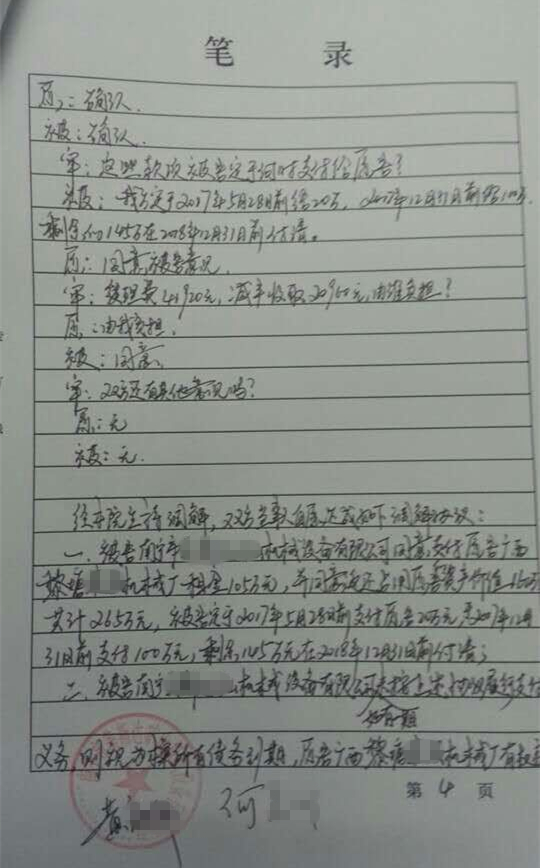 笔 录
原：确认。
被：确认。
审：这些款项被告定于何时支付给原告？
被：我方定于2017年5月28日前给20万，2017年12月31日前给100万，
剩余的145万在2018年12月31日前付清。
原：同意被告意见。
审：受理费41920元，减半收取20960元，由谁负担？
原：由我负担。
被：同意。
审：双方还有其他意见吗？
原：无
被：无.
经本院主持调解，双方当事人自愿达成如下调解协议：
一、被告南宁市 机械设备有限公司同意支付原告广西
黎塘 机械厂租金105万元，并同意返还占用原告资产价值160万
共计265万元，被告定于2017年5月28日前支付原告20万元，2017年12月
31日前支付100万元，剩余145万元在2018年12月31日前付清；
二、被告南宁 机械设备有限公司未按上述协议履行支付
义务，则视为 所有债务到期，原告广西黎塘 机械厂有权
第 4 页
黄
何